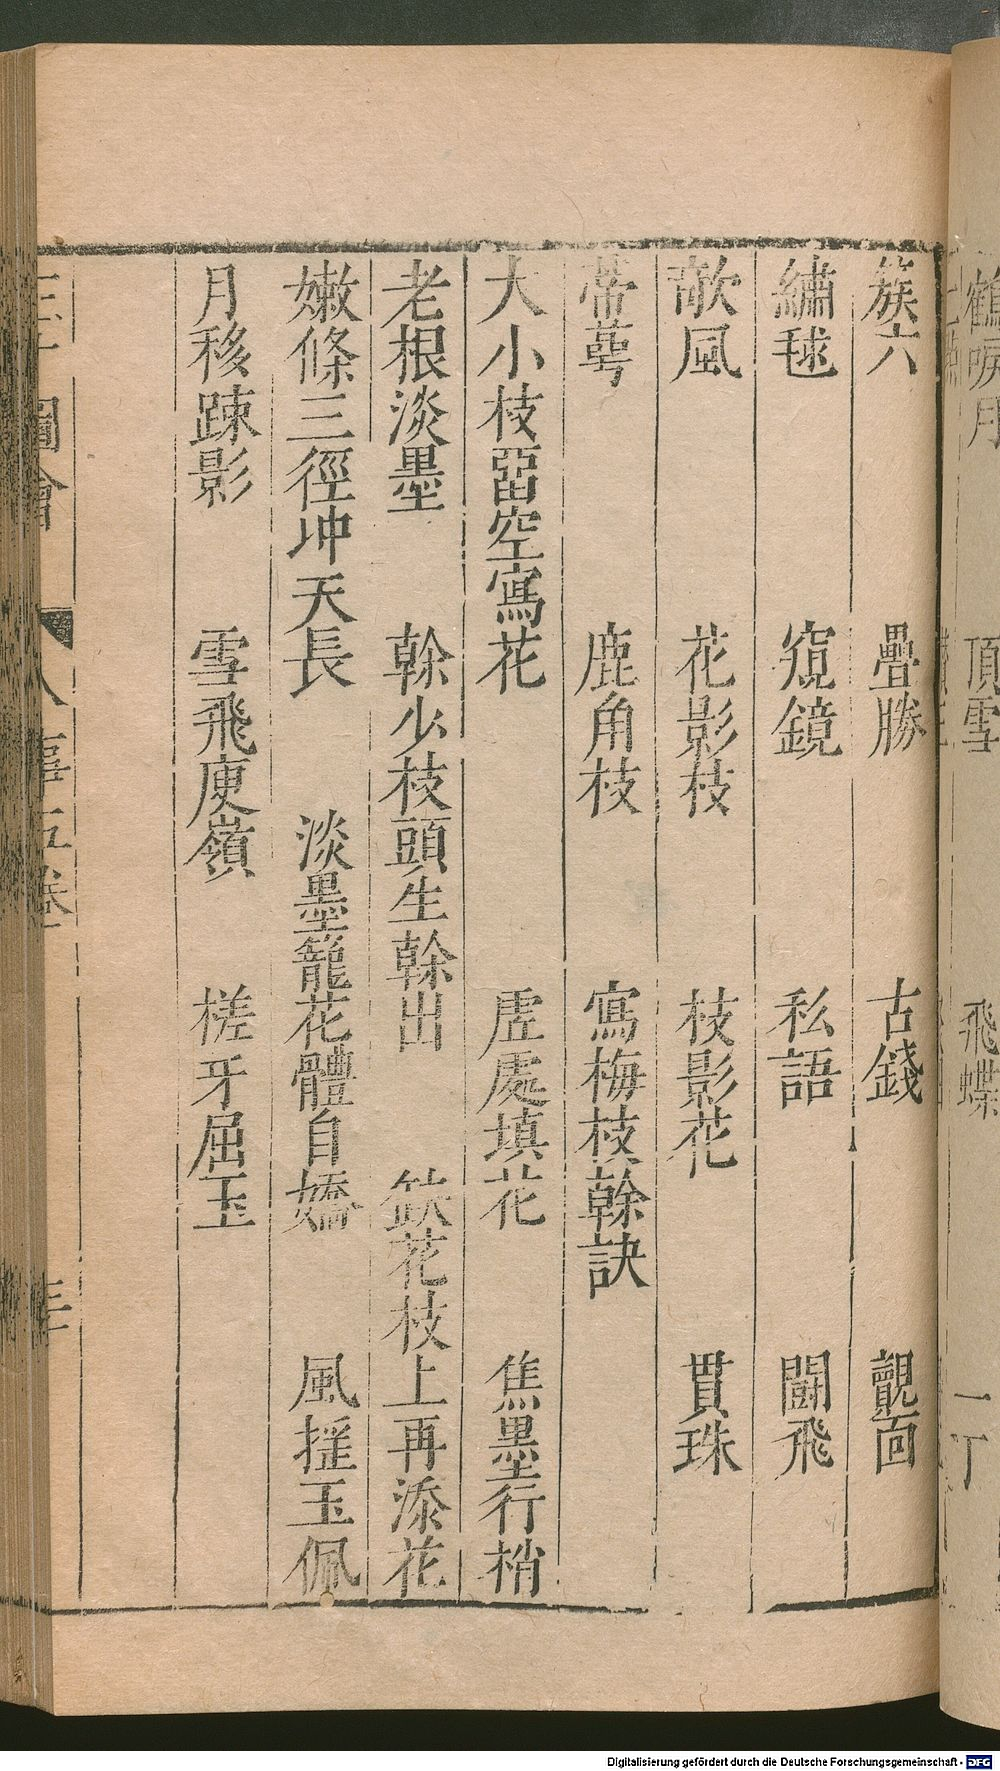 簇六 疊勝 古錢 覿面
繡毬 窺鏡 私語 鬪飛
欹風 花影枝 枝影花 貫珠
蒂萼 鹿角枝 寫梅枝榦訣
大小枝留空寫花 虗處填花 焦墨行梢
老根淡墨 榦少枝頭生榦出 缺花枝上再添花
嫩條三徑冲天長 淡墨籠花體自嬌 風搖玉佩
月移踈影 雪飛庾嶺 槎牙屈玉
三才圖會 人事五卷
鶴唳月 頂雪 飛蝶
Digitalisierung gefördert durch die Deutsche Forschungsgemeinschaft - DFG